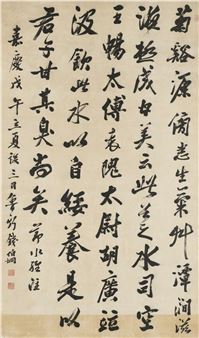 菊谿源傍悉生菊艸潭澗滋
液極成好美云此谷之水司空
王暢太傅袁隗太尉胡廣並
汲飲此水以自綏養是以
君子甘其臭尚矣 節水經注
嘉慶戊午立夏後三日魯斯錢伯坰